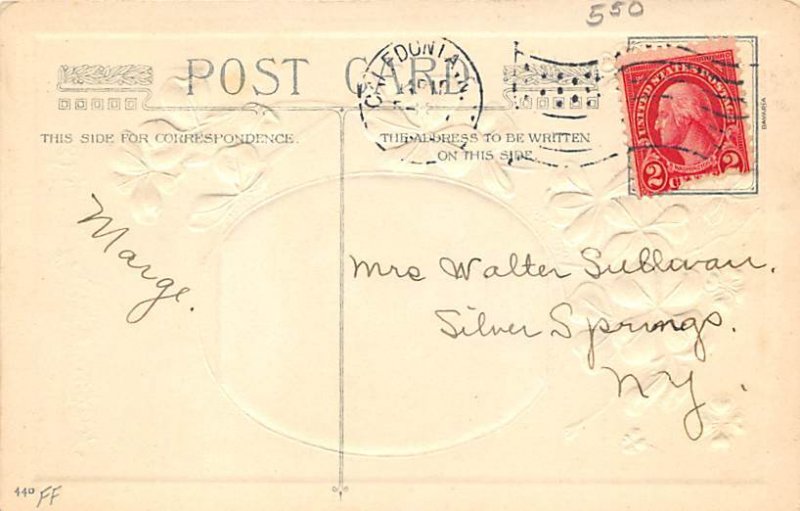 550
POST CARD
CALEDONIA, N.
THIS SIDE FOR CORRESPONDENCE.
THE ADDRESS TO BE WRITTEN
ON THIS SIDE.
UNITED STATES POSTAGE
WASHINGTON
2 2
Marge.
Mrs Walter Sullivan.
Silver Springs.
NY.
440 FF